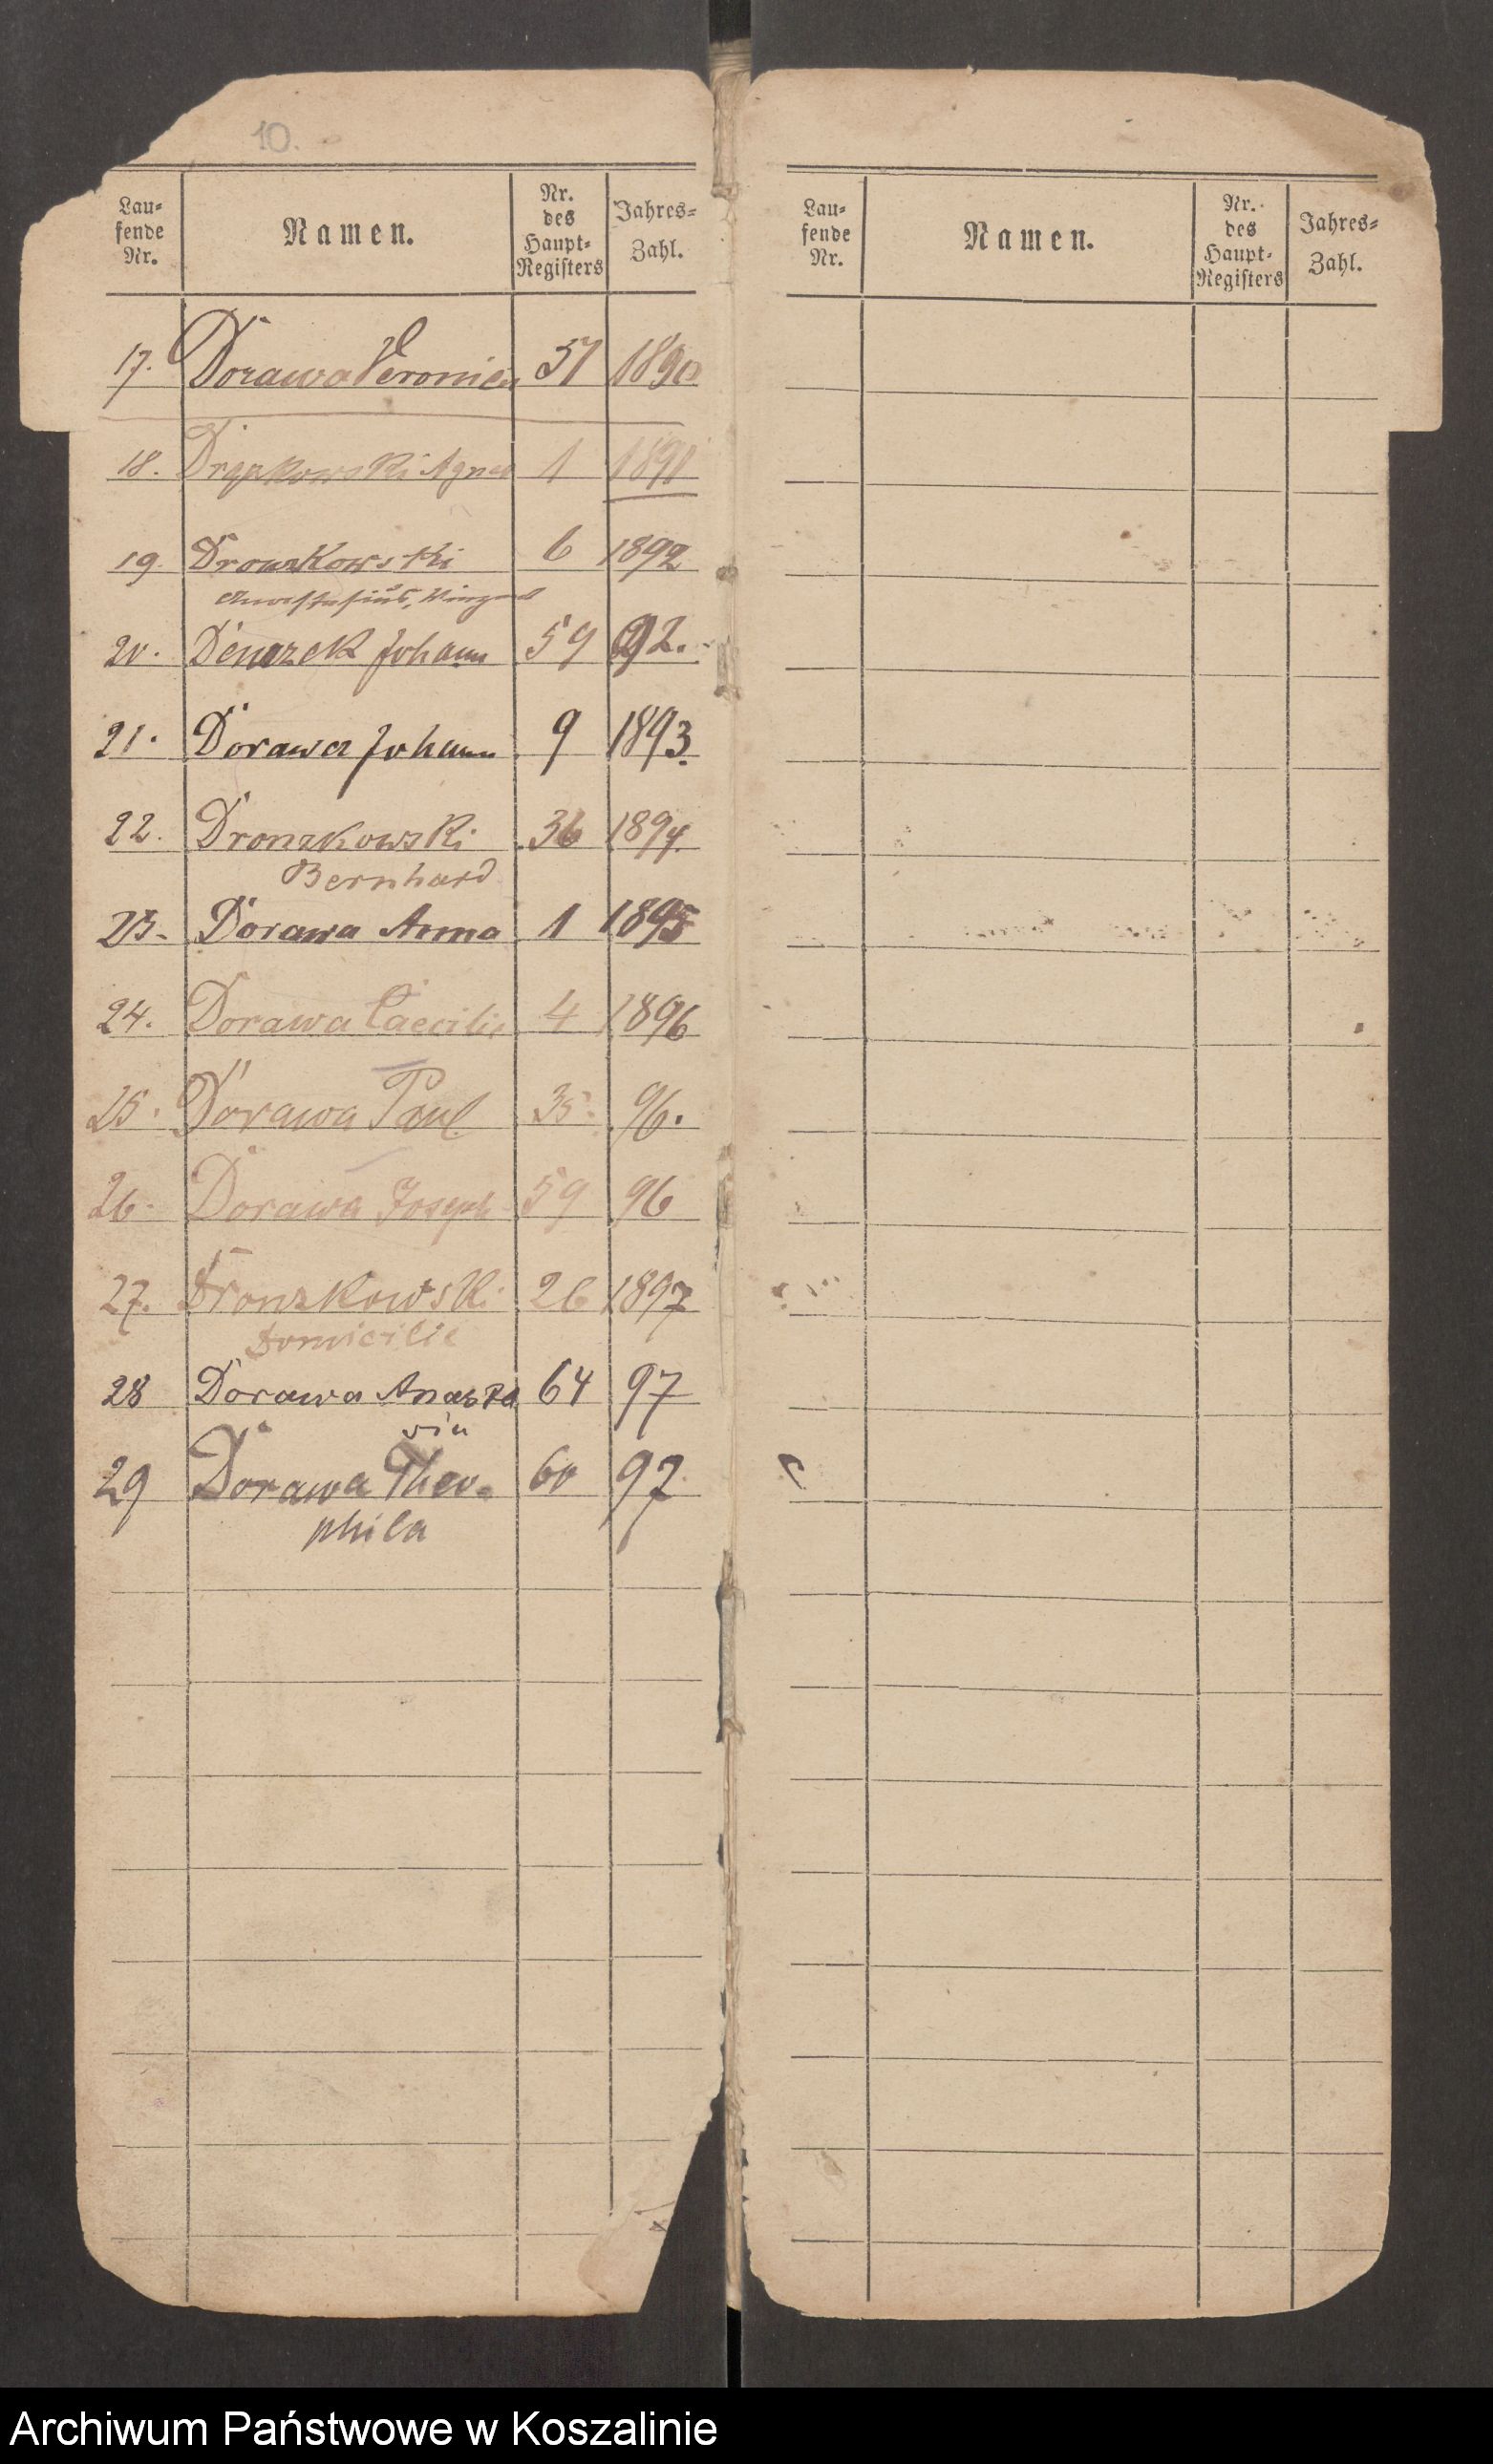 10.
Lau-
fende
Nr.
Namen.
Nr.
des
Haupt-
Registers
Jahres-
Zahl.
17. Dorawa Veronica 57 1890
18. Agnes 1 1891
19. Dronzkowski 6 1892
20. Johann 59 92.
21. Dorawa Johann 9 1893.
22. Dronzkowski 36 1894.
Bernhard
23. Dorawa Anna 1 1895
24. Dorawa Caecilie 4 1896
25. Dorawa Paul 35. 96.
26. Dorawa Joseph 59 96
27. Dronzkowski 26 1897
Domicilie
28 Dorawa Anasta 64 97
sia
29 Dorawa Theo- 60 97
phila
Lau-
fende
Nr.
Namen.
Nr.
des
Haupt-
Registers
Jahres-
Zahl.
Archiwum Państwowe w Koszalinie